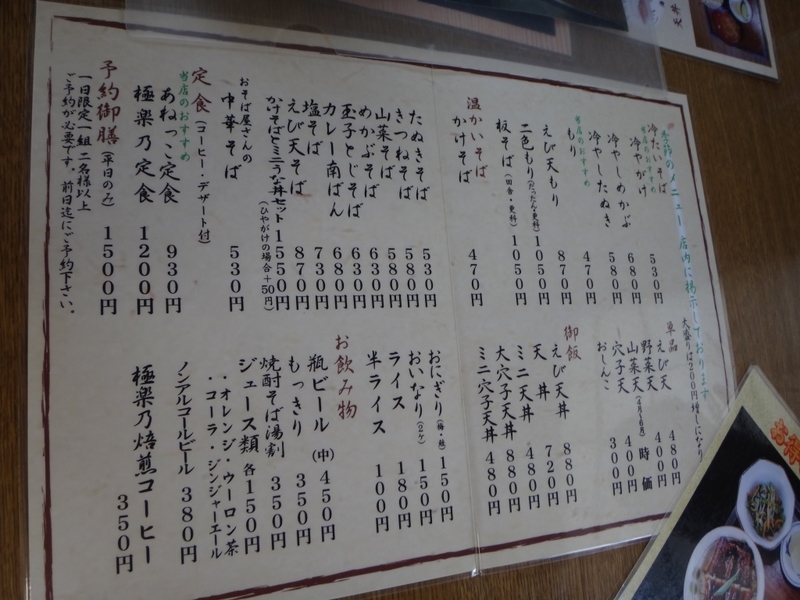 季節のメニュー 店内に掲示しております
大盛りは200円増しになり
冷たいそば
当店のおすすめ
冷やがけ 530円
冷やしめかぶ 680円
冷やしたぬき 580円
当店のおすすめ
もり 470円
えび天もり 870円
二色もり(だったん・更科) 1050円
板そば(田舎・更科) 1050円
温かいそば
かけそば 470円
たぬきそば 530円
きつねそば 580円
山菜そば 580円
めかぶそば 630円
玉子とじそば 630円
カレー南ばん 680円
塩そば 730円
えび天そば 870円
かけそばとミニうな丼セット 1550円
(ひやがけの場合+50円)
おそば屋さんの
中華そば 530円
定食(コーヒー・デザート付)
当店のおすすめ
あねっこ定食 930円
極楽乃定食 1200円
予約御膳(平日のみ) 1500円
一日限定一組 二名様以上
ご予約が必要です。前日迄にご予約下さい。
単品
えび天 480円
野菜天 400円
山菜天(4月~6月) 時価
穴子天 400円
おしんこ 300円
御飯
えび天丼 880円
天丼 720円
ミニ天丼 480円
大穴子天丼 880円
ミニ穴子天丼 480円
おにぎり(梅・鮭) 150円
おいなり(2ケ) 150円
ライス 180円
半ライス 100円
お飲み物
瓶ビール(中) 450円
もっきり 350円
焼酎そば湯割 350円
ジュース類 各150円
・オレンジ・ウーロン茶
・コーラ・ジンジャーエール
ノンアルコールビール 380円
極楽乃焙煎コーヒー 350円